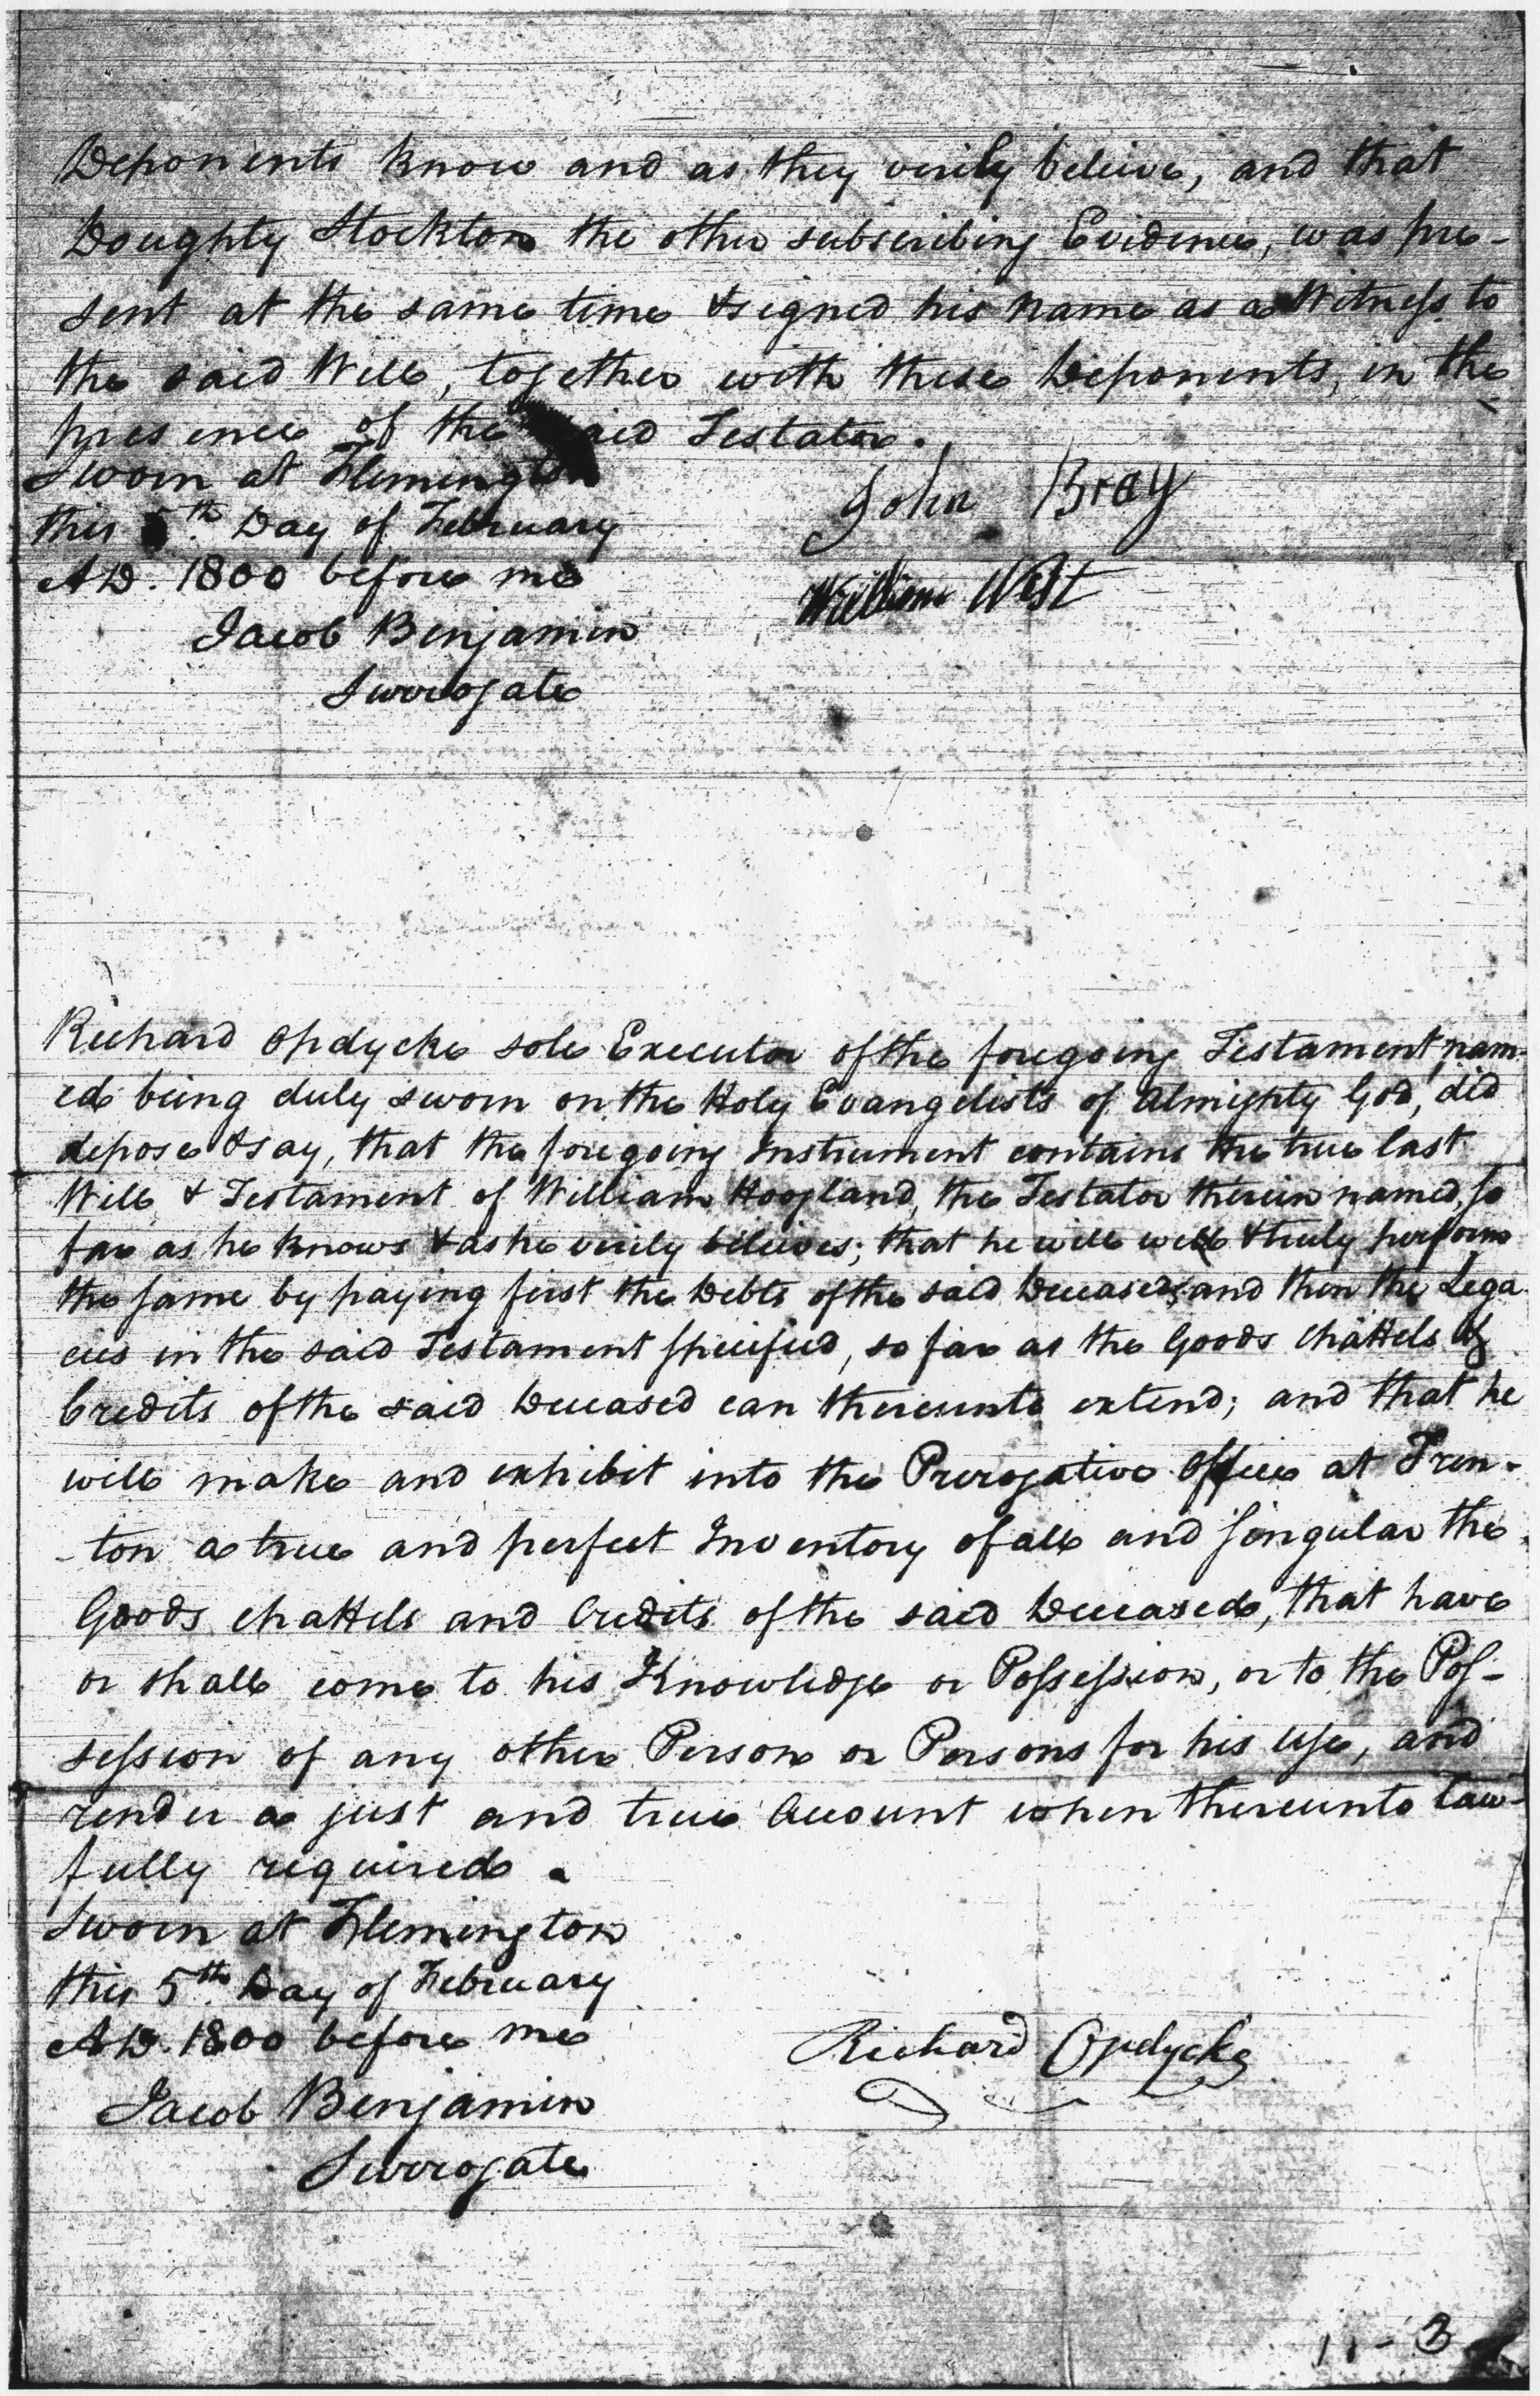 Deponents know and as they verily beleive, and that
Doughty Stockton the other subscribing Evidence, was pre-
sent at the same time & signed his name as a Witness to
the said Will, together with these Deponents, in the
presence of the said Testator.
Sworn at Flemington
this 5th. Day of February
AD. 1800 before me
Jacob Benjamin
Surrogate
John Bray
William West
Richard Opdycke sole Executor of the foregoing Testament, nam-
ed being duly sworn on the Holy Evangelists of Almighty God, did
depose & say, that the foregoing Instrument contains the true last
Will & Testament of William Hoogland, the Testator therein named, so
far as he knows & as he verily beleives; that he will well & truly perform
the same by paying first the Debts of the said Deceased, and then the Lega-
cies in the said Testament specified, so far as the Goods Chattels &
Credits of the said Deceased can thereunto extend; and that he
will make and exhibit into the Prerogative Office at Tren-
-ton a true and perfect Inventory of all and singular the
Goods Chattels and Credits of the said Deceased, that have
or shall come to his Knowledge or Possession, or to the Pos-
session of any other Person or Persons for his use, and
render a just and true Account when thereunto law-
fully required.
Sworn at Flemington
this 5th. Day of February
AD. 1800 before me
Jacob Benjamin
Surrogate
Richard Opdycke
11-3